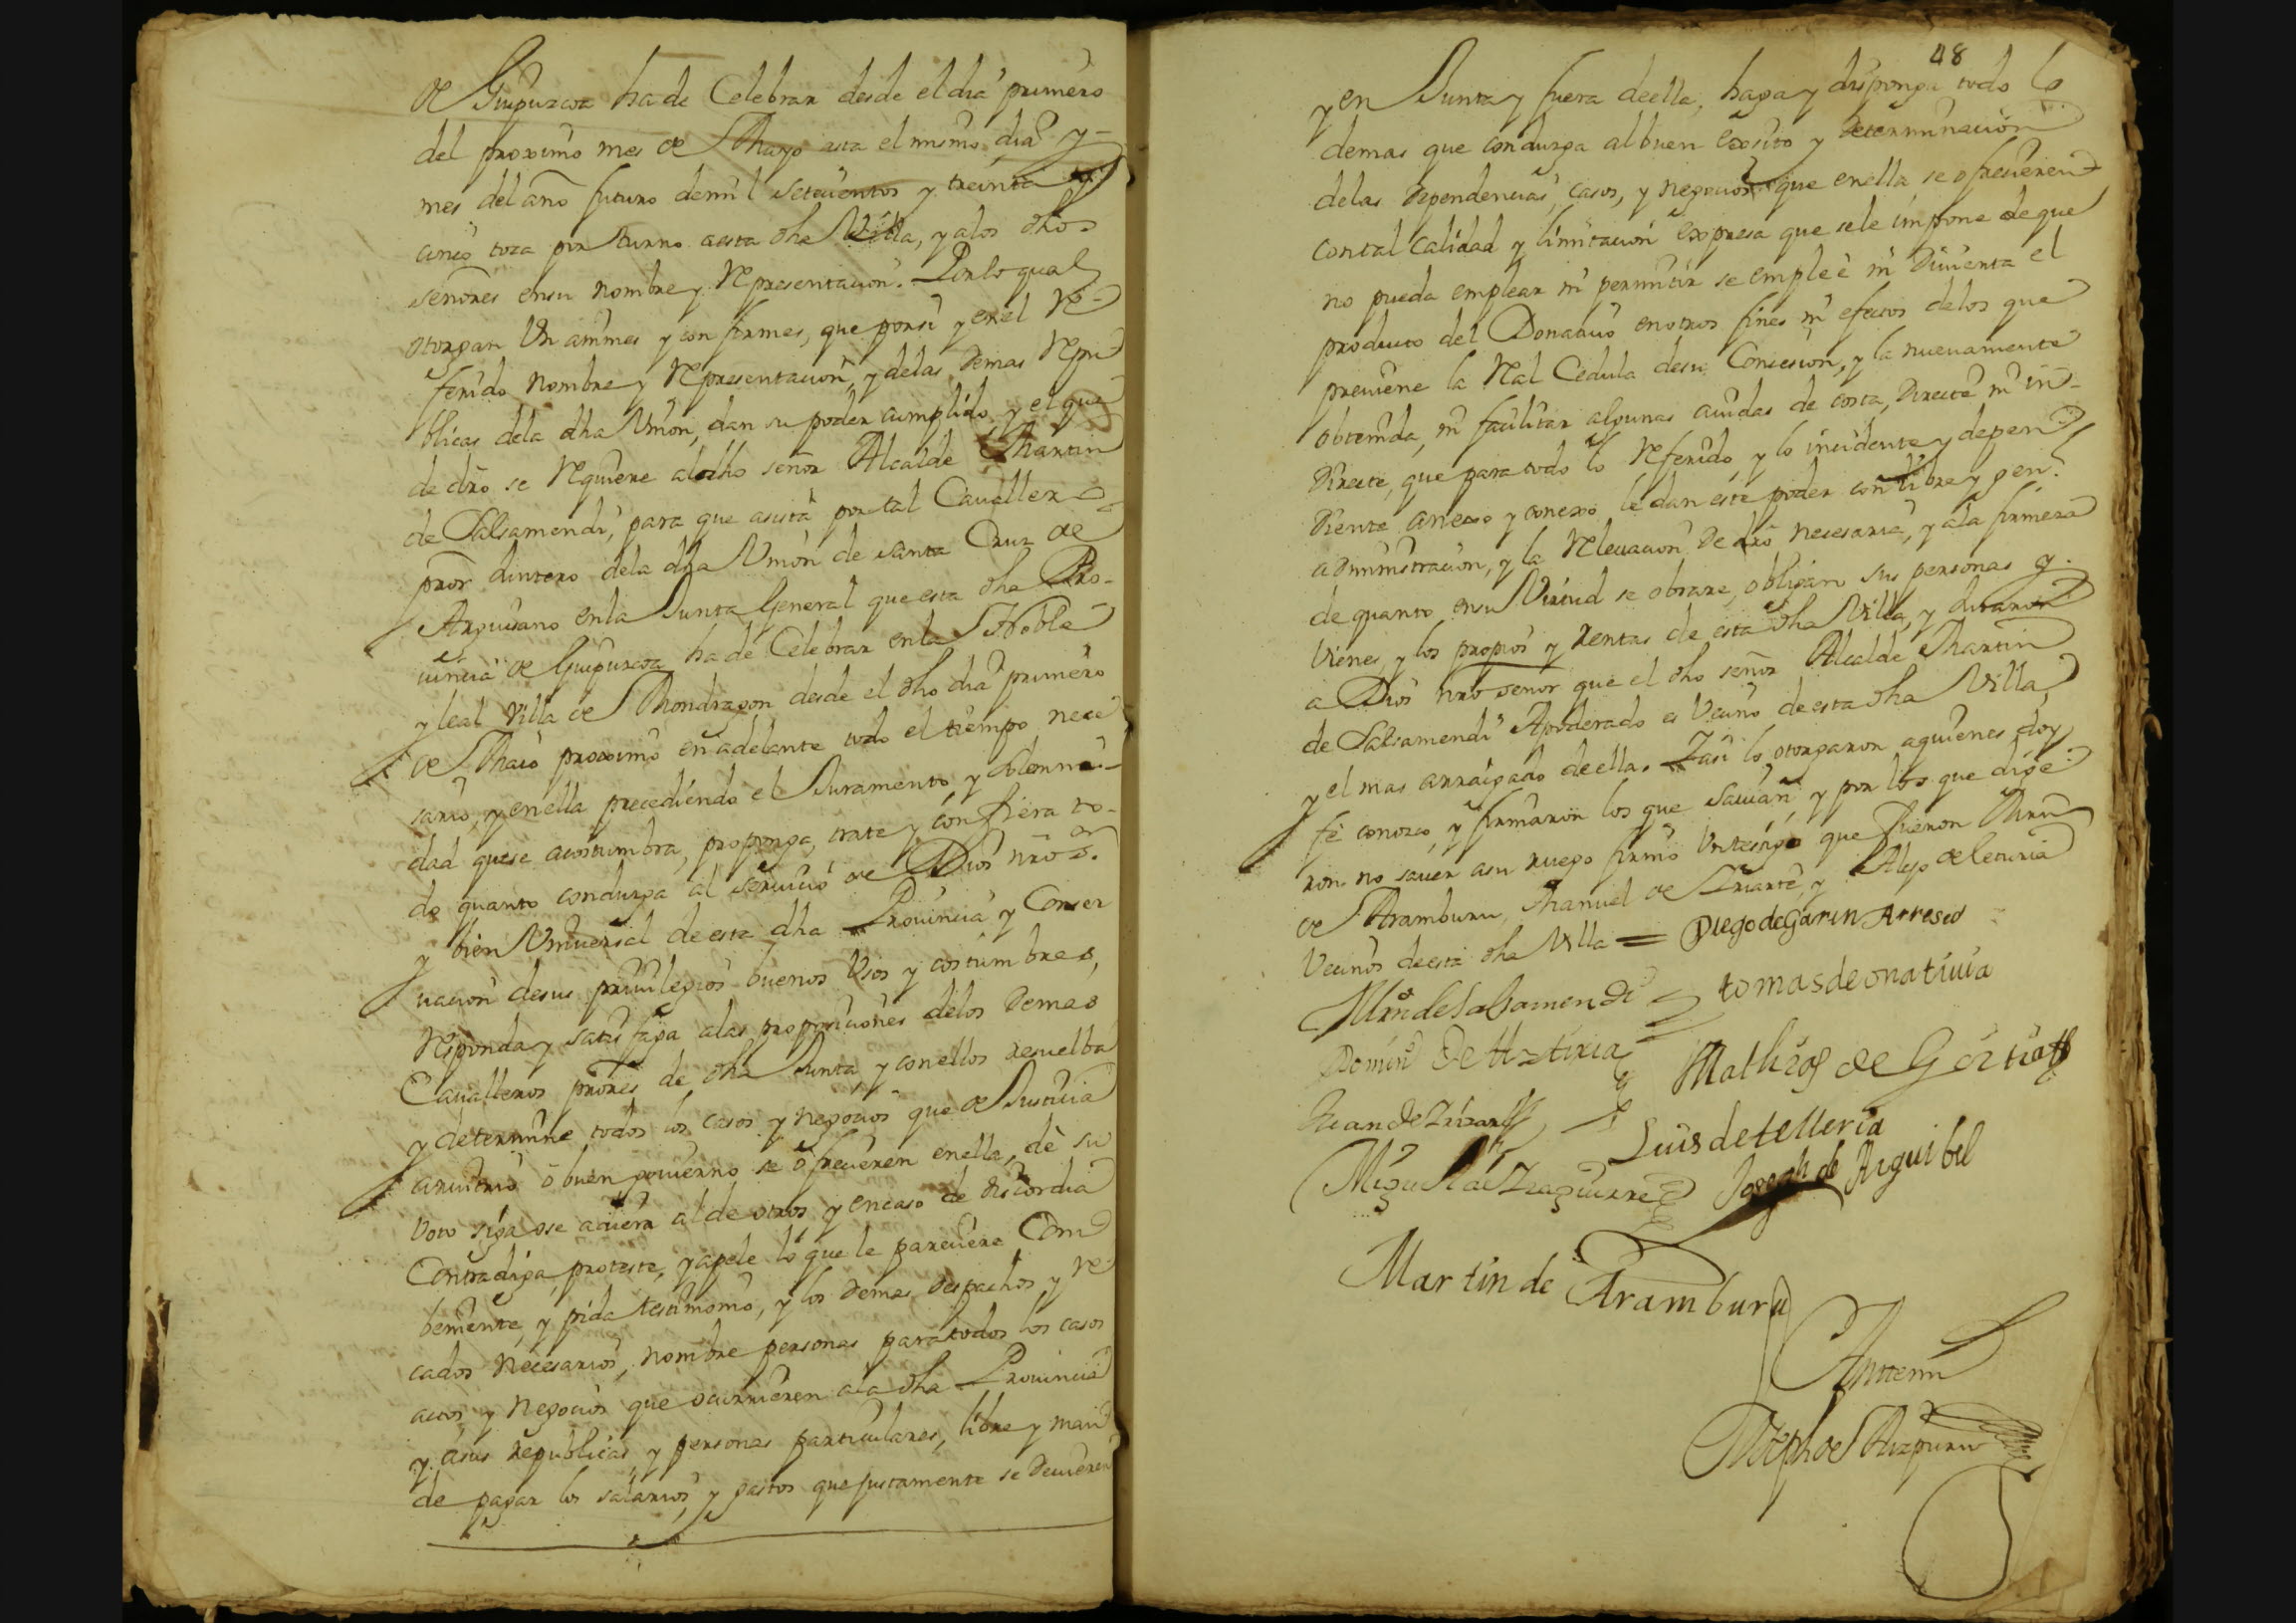 de Guipuzcoa ha de Celebrar desde el dia primero
del proximo mes de Mayo asta el mismo dia y
mes del año futuro de mil setecientos y treinta y
cinco toca por turno a esta dha Villa, y alos dhos
señores en su nombre y Representacion. Por lo qual
otorgan Unanimes y conformes, que por si y en el Re-
ferido Nombre y Representacion, y delas demas Repu
blicas dela dha Union, dan su poder cumplido, y el que
de dro se Requiere al dho señor Alcalde Martin
de Salsamendi, para que asista por tal Cavallero
pror dela dha Union de Santa Cruz de
Arguisano en la Junta General que esta dha Pro-
uincia de Guipuzcoa ha de Celebrar en la Noble
y leal Villa de Mondragon desde el dho dia primero
de Maio proximo en adelante todo el tiempo nece
sario, y en ella precediendo el Juramento y solemni-
dad que se acostumbra, proponga, trate y confiera to-
do quanto conduzga al servicio de Dios nro sr
y bien Universal de esta dha Prouincia y Conser
uacion de sus priuilegios buenos Usos y costumbres,
Responda y satisfaga alas proposiciones delos Demas
Caualleros prores de dha Junta y con ellos resuelba
y determine todos los casos y negocios que de Justicia
arvitrio ò buen gouierno se ofrecieren en ella, dè su
voto siga o se adiera al de otros y en caso de discordia
Contradiga, proteste, y apele lo que le pareciere Com
beniente, y pida testimonio, y los Demas despachos y Re
cados Necesarios, nombre personas para todos los casos
actos y Negocios que ocurrieren ala dha Prouincia
y asus republicas y personas particulares, libre y man
de pagar los salarios y gastos que justamente se Deuieren
48
y en Junta y fuera de ella, haga y disponga todo lo
demas que conduzga al buen exsito y Determinacion
delas Dependencias, casos, y negocios que en ella se ofrecieren
con tal calidad y limitacion expresa que se le impone de que
no pueda emplear ni permitir se emplee ni Diuierta el
producto del Donatiuo en otros fines ni efectos delos que
preuiene la Real Cedula de su Concesion, y la nueuamente
obtenida, ni facilitar algunas aiudas de costa, Directe ni in-
Directe, que para todo lo Referido y lo incidente y depen
Diente, anexo y conexo le dan este poder con libre y gen.
administracion, y la Releuacion De dro necesaria, y ala firmeza
de quanto en su Virtud se obrare, obligan sus personas y
Vienes, y los propios y rentas de esta dha Villa, y Juraron
a Dios nro senor que el dho señor Alcalde Martin
de Salsamendi Apoderado es Vecino de esta dha Villa,
y el mas arraigado de ella. I asi lo otorgaron aquienes doy
fe conozco, y firmaron los que sauian, y por los que dige-
ron no sauer asu ruego firmò Un testigo que fueron
de Aramburu, Manuel de Iriarte, y Alejo de Leturia
Vecinos de esta dha Villa = Diego de Garin Arreseo
Mrn de Salsamendi
tomas de onatiuia
Domin de Aztiria
Mathias de Gorti
Juan de
Luis de telleria
Miguel de Izaguirre
Joseph de Arguibel
Martin de Aramburu
Ante mi
Joseph de Aizpuru